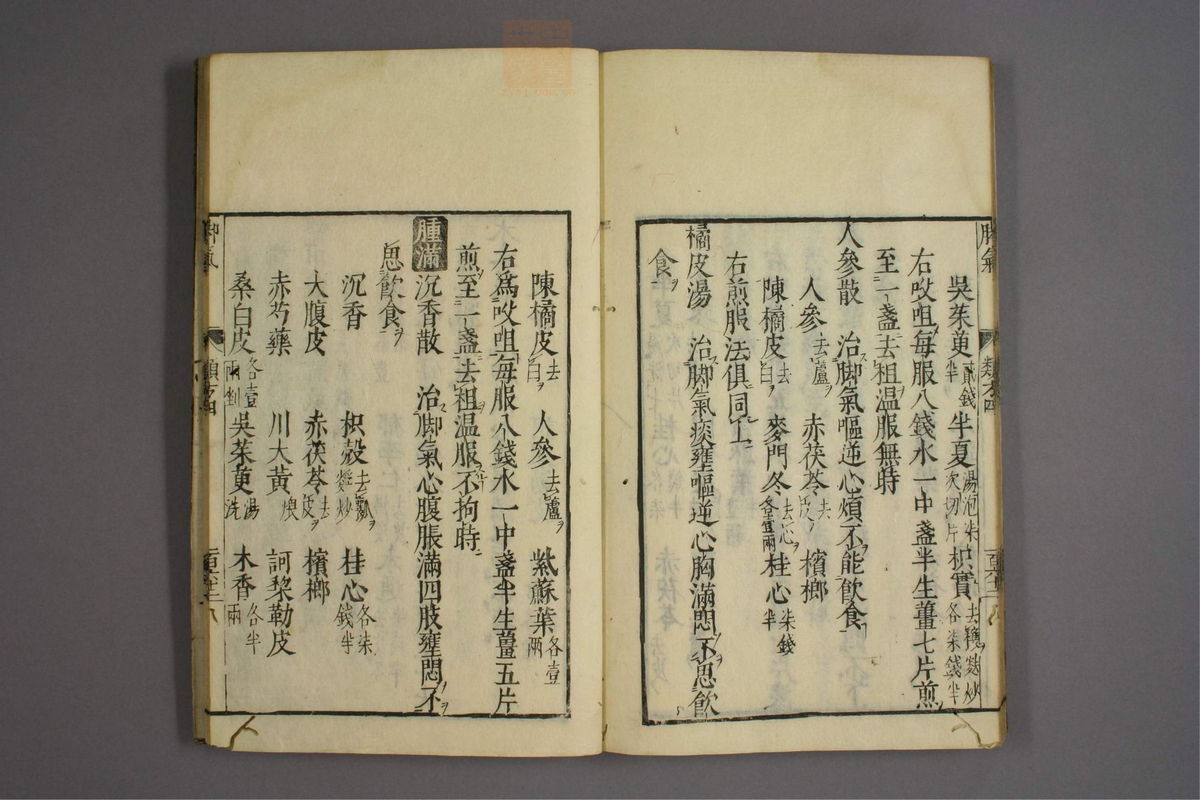 吳茱萸貳錢半 半夏湯泡柒次切片 枳實去穰麩炒各柒錢半
右㕮咀每服八錢水一中盞半生薑七片煎
至一盞去柤温服無時
人參散 治脚氣嘔逆心煩不能飲食
人參去蘆ヲ 赤茯苓去皮ヲ 檳榔
陳橘皮去白ヲ 麥門冬去心ヲ各壹兩 桂心柒錢半
右煎服法俱同上
橘皮湯 治脚氣痰壅嘔逆心胸滿悶不思飲
食
陳橘皮去白ヲ 人參去蘆ヲ 紫蘇葉各壹兩
右爲㕮咀每服八錢水一中盞半生薑五片
煎至一盞去柤温服不拘時
腫滿 沉香散 治脚氣心腹脹滿四肢壅悶不
思飲食
沉香 枳殼去瓤ヲ麩炒 桂心各柒錢半
大腹皮 赤茯苓去皮ヲ 檳榔
赤芍藥 川大黃煨 訶黎勒皮
桑白皮各壹兩剉 吳茱萸湯洗 木香各半兩
脚氣
類方四